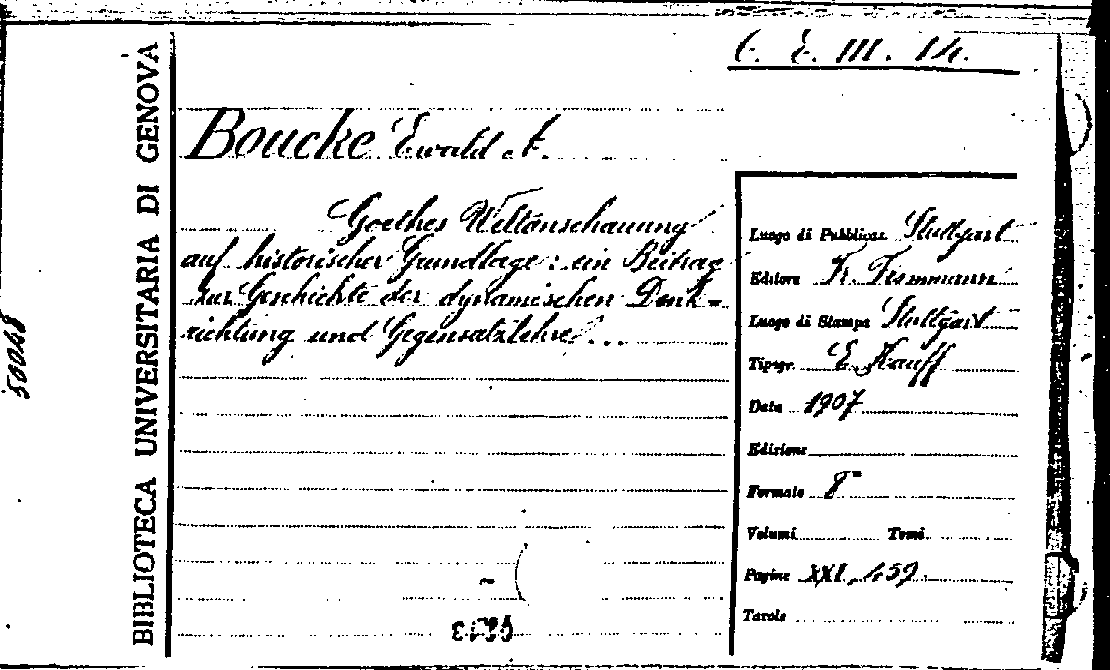 C. E. III. 14.
BIBLIOTECA UNIVERSITARIA DI GENOVA
50048
Boucke Ewald A.
Goethes Weltanschauung
auf historischer Grundlage: ein Beitrag
zur Geschichte der dynamischen Denk=
richtung und Gegensatzlehre...
Luogo di Pubblicaz. Stuttgart
Editore Fr. Frommann
Luogo di Stampa Stuttgart
Tipogr. E. Hauff
Data 1907
Edizione
Formato 8°
Volumi Tomi
Pagine XXI, 459
Tavole